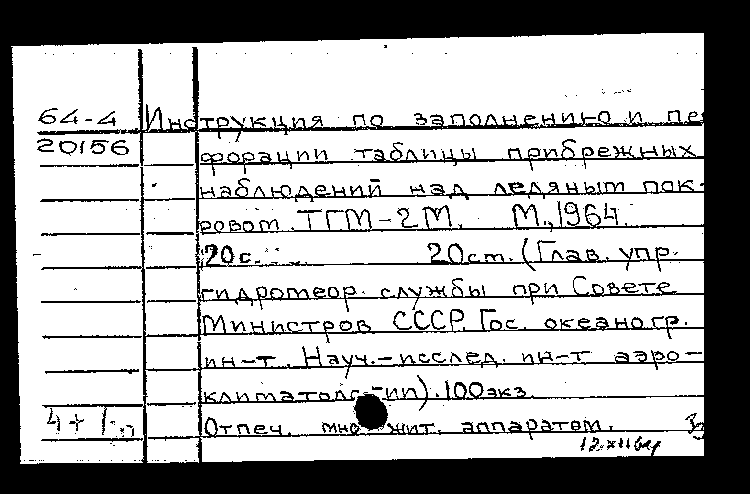 64-4 Инструкция по заполнению и пе
20156 форации таблицы прибрежных
наблюдений над ледяным пок-
ровом ТГМ-2М. М., 1964.
20с. 20ст. (Глав. упр.
гидрометеор. службы при Совете
Министров СССР. Гос. океаногр.
ин-т. Науч.-исслед. ин-т аэро-
климатологии). 100экз.
4+1 Отпеч. множит. аппаратом.